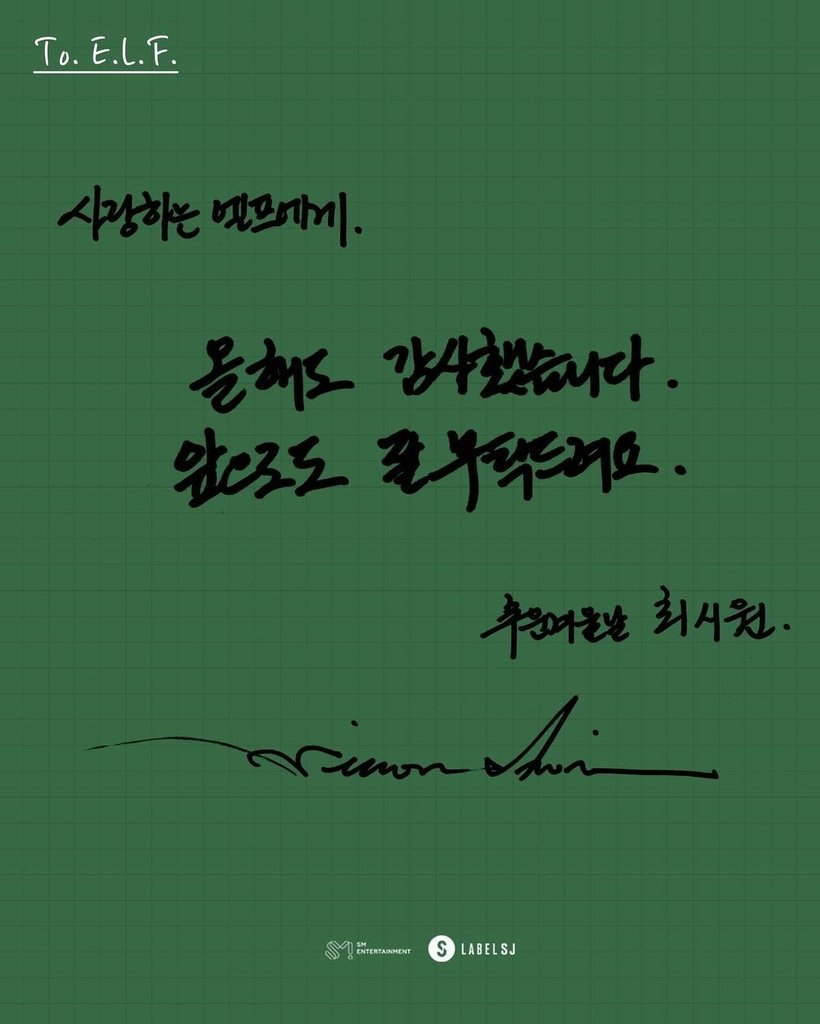 To. E.L.F.
사랑하는 엘프에게.
올해도 감사했습니다.
앞으로도 잘 부탁드려요.
추운겨울날 최시원.
Siwon Choi
SM
ENTERTAINMENT
LABELSJ